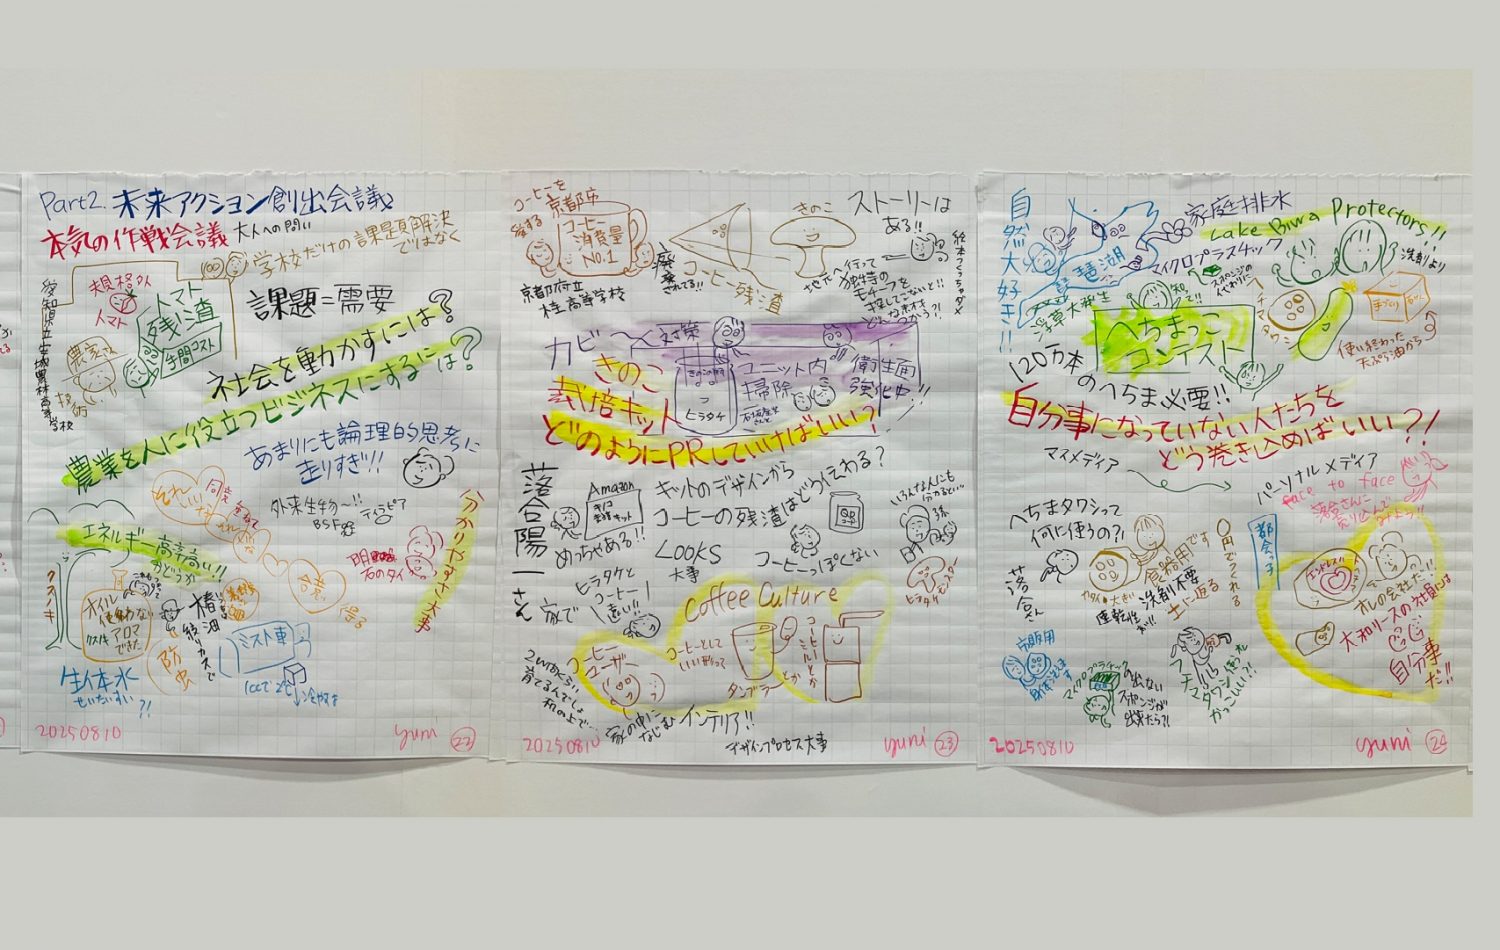 Part2. 未来アクション創出会議
本気の作戦会議 大人への問い
学校だけの課題解決
ではなく
愛知県立安城農林高等学校
規格外
トマト
トマト
残渣
手間コスト
課題=需要
社会を動かすには?
農業を人に役立つビジネスにするには?
あまりにも論理的思考に
走りすぎ!!
外来生物〜!!
BSF
ティラピア
エネルギー高率高い!!
かどうか
クスノキ
オイル
使わない
アロマ
できた
椿油
絞りカスで
防虫
合意
得る
ミスト車
1ccで2℃
生体水
ぜいたくすい?!
分かりやすさ大事
20250810
yuni 22
コーヒーを
愛する
京都府
コーヒー
消費量
NO.1
京都府立
桂高等学校
廃棄されてる!!
コーヒー残渣
きのこ
ストーリーは
ある!!
地元へ行って
独特の
モチーフを
探してこないと!!
どんな素材を
つかう?!
絵本つくっちゃダメ
カビ 対策
ユニット内
掃除
衛生面
強化中!!
ヒラタケ
きのこ
栽培キット
どのようにPRしていけばいい?
落合陽一さん
Amazon
キノコ
栽培キット
めっちゃある!!
キットのデザインから
コーヒーの残渣はどう伝わる?
QR
コード
いろんな人にも
分かると…
LOOKS
大事
コーヒーっぽくない
ヒラタケと
コーヒー
遠い!!
家で
Coffee Culture
コーヒー
ユーザー
コーヒーとして
いい形って
タンブラーとか
コーヒーミルとか
2Wぐらい
育てるんでしょ
机の上で…
家の中に
なじむ インテリア!!
デザインプロセス大事
20250810
yuni 23
自然大好き!!
琵琶湖
家庭排水
Lake Biwa Protectors!!
マイクロプラスチック
スポンジの
代わりに
洗剤より
手づくり
石けん
使い終わった
天ぷら油から
浮草大発生
知って!!
へちまっこ
コンテスト
120万本
のへちま必要!!
自分事になっていない人たちを
どう巻き込めばいい?!
マスメディア
パーソナルメディア
face to face
落合さんに
売り込んで
みよう!!
へちまタワシって
何に使うの?!
落合さん
食器用です
洗剤不要
土に返る
速乾性
が!!
0円でつくれる
都会っ子
市販用
マイクロプラチック
の出ない
スポンジが
出来たら?!
ヘチマタワシ使うオレ
かっこいい!?
エンドレスハート
オレの会社だい!!
大和リースの社員には
自分事
だ!!
20250810
yuni 24